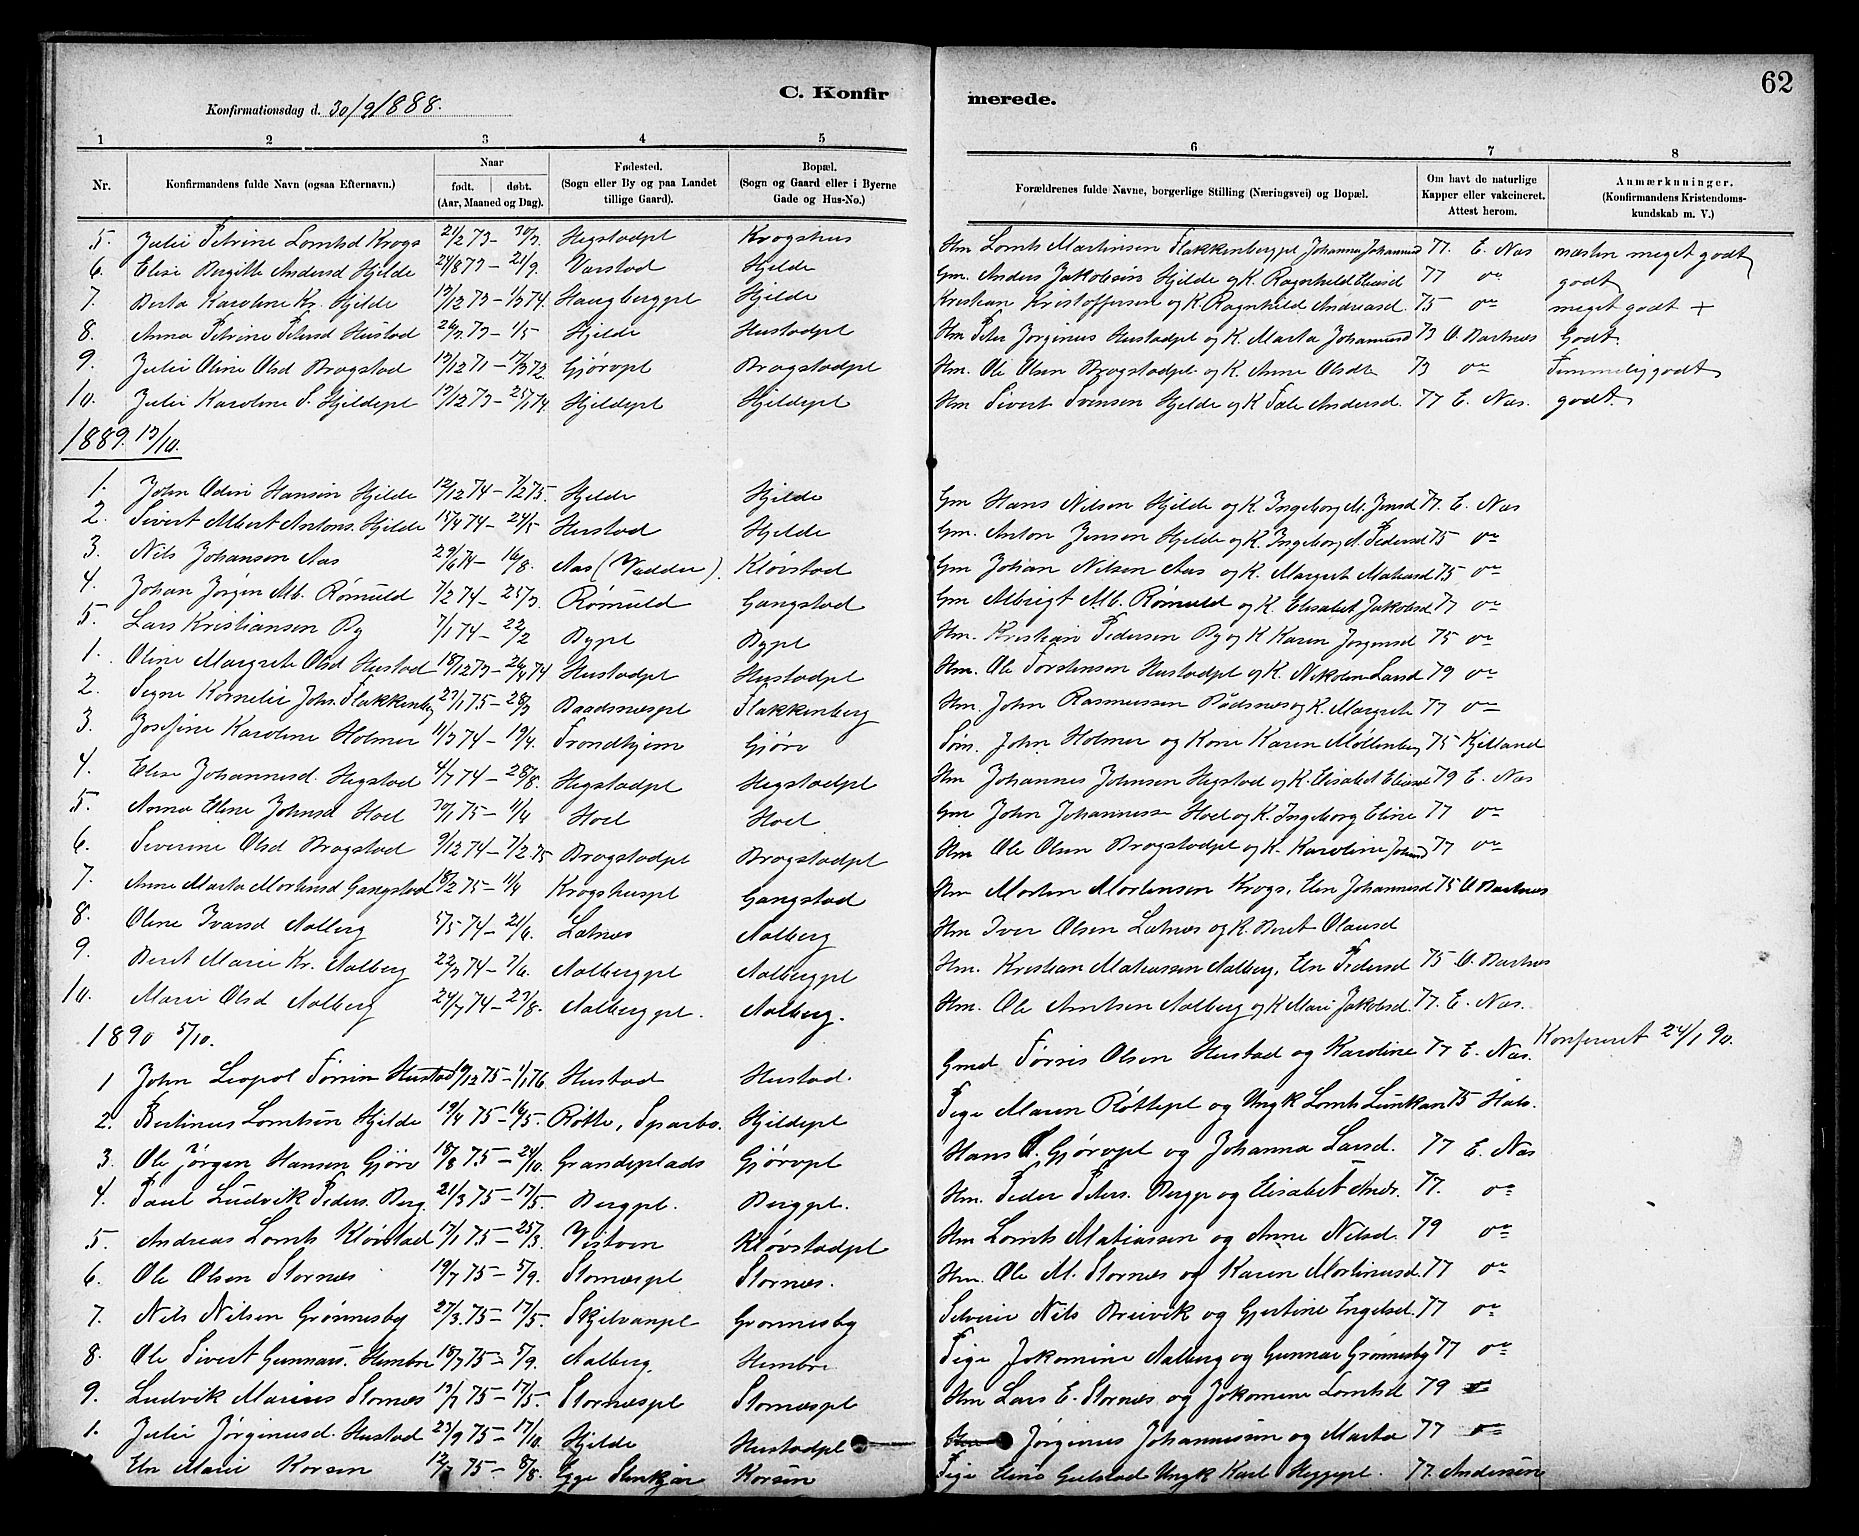 62
C. Konfirmerede.
Konfirmationsdag d. 30/9 1888.
1 2 3 4 5 6 7 8
Nr. Konfirmandens fulde Navn (ogsaa Efternavn.) Naar født. døbt. (Aar, Maaned og Dag). Fødested. (Sogn eller By og paa Landet tillige Gaard). Bopæl. (Sogn og Gaard eller i Byerne Gade og Hus-No.) Forældrenes fulde Navne, borgerlige Stilling (Næringsvei) og Bopæl. Om havt de naturlige Kapper eller vakcineret. Attest herom. Anmærkninger. (Konfirmandens Kristendomskundskab m. V.)
5. Julie Petrine Lorntsd Krogs 21/2 73 – 30/3. Hegstadpl Krogshus Hm Lornts Martinsen Flakkenbergpl Johanna Johannesd 77. E. Næs næsten meget godt
6. Elise Bergitte Andersd Hjelde 24/8 73 – 21/9. Varstad Hjelde Gm. Anders Jakobsen Hjelde og K. Ragnhild Eliasd 77 do godt
7. Berta Karoline Kr. Hjelde 13/12 73 – 1/3 74. Haugbergpl Hjelde Kristian Kristoffersen og K. Ragnhild Andreasd. 75 do meget godt +
8. Anna Petrine Petersd Hustad 26/3 73 – 1/5 Hjelde Hustadpl Hm Peter Jørginus Hustadpl og K. Marta Johannesd 73 O. Bartnes Godt.
9. Julie Oline Olsd Brogstad 13/12 71 – 17/3 72. Gjørvpl Brogstadpl Hm. Ole Olsen Brogstadpl og K. Anne Olsdt 73 do Temmelig godt
10. Julie Karoline S. Hjeldepl 13/12 73 – 25/1 74. Hjeldepl Hjeldepl Hm Sivert Svensen Hjelde og K Tale Andersd. 77 E. Næs. godt.
1889. 13/10.
1. John Odin Hansen Hjelde 12/12 74 – 7/2 75. Hjelde Hjelde Gm Hans Nilsen Hjelde og K. Ingeborg M. Jensd 77. E. Næs
2. Sivert Albert Antons. Hjelde 15/4 74 – 24/5 Hustad Hjelde Gm. Anton Jensen Hjelde og K. Ingeborg A. Pedersd 75 do
3. Nils Johansen Aas 29/6 74 – 16/8. Aas (Vudder). Kløvstad Gm Johan Nilsen Aas og K. Margrete Matiasd 75 do
4. Johan Jørgen Alb. Rømuld 7/2 74 – 25/3. Rømuld Gangstad Gm Albregt Alb. Rømuld og K. Elisabet Jakobsd 77 do
5. Lars Kristiansen By 7/1 74 – 22/2 Bypl Bypl Hm. Kristian Pedersen By og K Karen Jørgensd 75 do
1. Oline Margrete Olsd Hustad 18/12 73 – 26/4 74 Hustadpl Hustadpl Hm. Ole Torstensen Hustadpl og K. Nikoline Larsd 79 do
2. Signe Kornelie Johns. Flakkenberg 27/1 75 – 28/3 Baadsnæspl Flakkenberg Hm. John Rasmussen Bådsnæs og K. Margrete 77 do
3. Josefine Karoline Holmer 11/3 74 – 19/4. Trondhjem Gjørv Søm. John Holmer og Kone Karen Møllenberg 75 Kjelland
4. Elise Johannesd. Hegstad 4/7 74 – 28/8. Hegstadpl Hegstadpl Hm Johannes Johnsen Hegstad og K. Elisabet Eliasd 79 E. Næs
5. Anna Eline Johnsd Hoel 30/1 75 – 11/4 Hoel Hoel Gm John Johannessen Hoel og K. Ingeborg Eline 77 do
6. Severine Olsd Brogstad 9/12 74 – 7/2 75 Brogstadpl Brogstadpl Hm Ole Olsen Brogstadpl og K. Karoline Johnsd 77 do
7. Anne Marta Mortensd Gangstad 18/2 75 – 11/4 Krogshuspl Gangstad Hm Morten Mortensen Krogs, Elen Johannesd 75 O. Bartnes
8. Oline Ivarsd Aalberg 5/5 74 – 21/6. Letnes Aalberg Hm Iver Olsen Letnes og K. Beret Olausd
9. Beret Marie Kr. Aalberg 22/3 74 – 7/6. Aalbergpl Aalbergpl Hm. Kristian Matiassen Aalberg, Eln Pedersd 75 O. Bartnes
10. Marie Olsd Aalberg 24/7 74 – 23/8. Aalbergpl. Aalberg. Hm. Ole Arntsen Aalberg og K Marie Jakobsd. 77. E. Næs.
1890 5/10.
1 John Leopol Tørris Hustad 19/12 75 – 1/1 76. Hustad Hustad. Gmd Tørris Olsen Hustad og Karoline 77 E. Næs. Konfirmeret 24/1 90.
2. Bertinus Lorntsen Hjelde 19/4 75 – 16/5. Røtte, Sparbo. Hjeldepl Pige Maren Røttepl og Ungk Lornts Lunkan 75
3 Ole Jørgen Hansen Gjørv 18/8 75 – 24/10. Grandeplads Gjørvpl Hans Gjørvpl og Johanna Larsd. 77 E. Næs
4. Paul Ludvik Peders. Berg 21/3 75 – 17/5. Bergpl. Bergpl. Hm. Peder Peters. Bergp og Elisabet Andr. 77. do
5. Andreas Lornts Kløvstad 17/1 75 – 25/3. Vistven Kløvstadpl Hm Lornts Matiassen og Anne Nilsd. 79 do
6. Ole Olsen Stornæs 19/7 75 – 5/9. Stornæspl Stornæs. Hm. Ole M. Stornæs og Karen Mortinusd. 77 do
7. Nils Nilsen Grønnesby 27/3. 75 – 17/5. Skjelvanpl Grønnesby Selveier Nils Breivik og Gjertine Engelsd. 77 do
8. Ole Sivert Gunnars. Hembre 18/7 75 – 5/9. Aalberg. Hembre Pige Jokomine Aalberg og Gunnar Grønnesby 77 do
9. Ludvik Marius Stornæs 13/2 75 – 17/5. Stornæspl Stornæspl Hm Lars E. Stornæs og Jokomine Lorntsd 79
1. Julie Jørginusd. Hustad 23/9 75 – 17/10. Hjelde Hustadpl Jørginus Johannessen og Marta 77 do
Eln Marie Korsen 12/7 75 – 8/8. Egge Stenkjær Korsen Pige Elene Gulstad Ungk Karl Heggepl. 77. Andersen